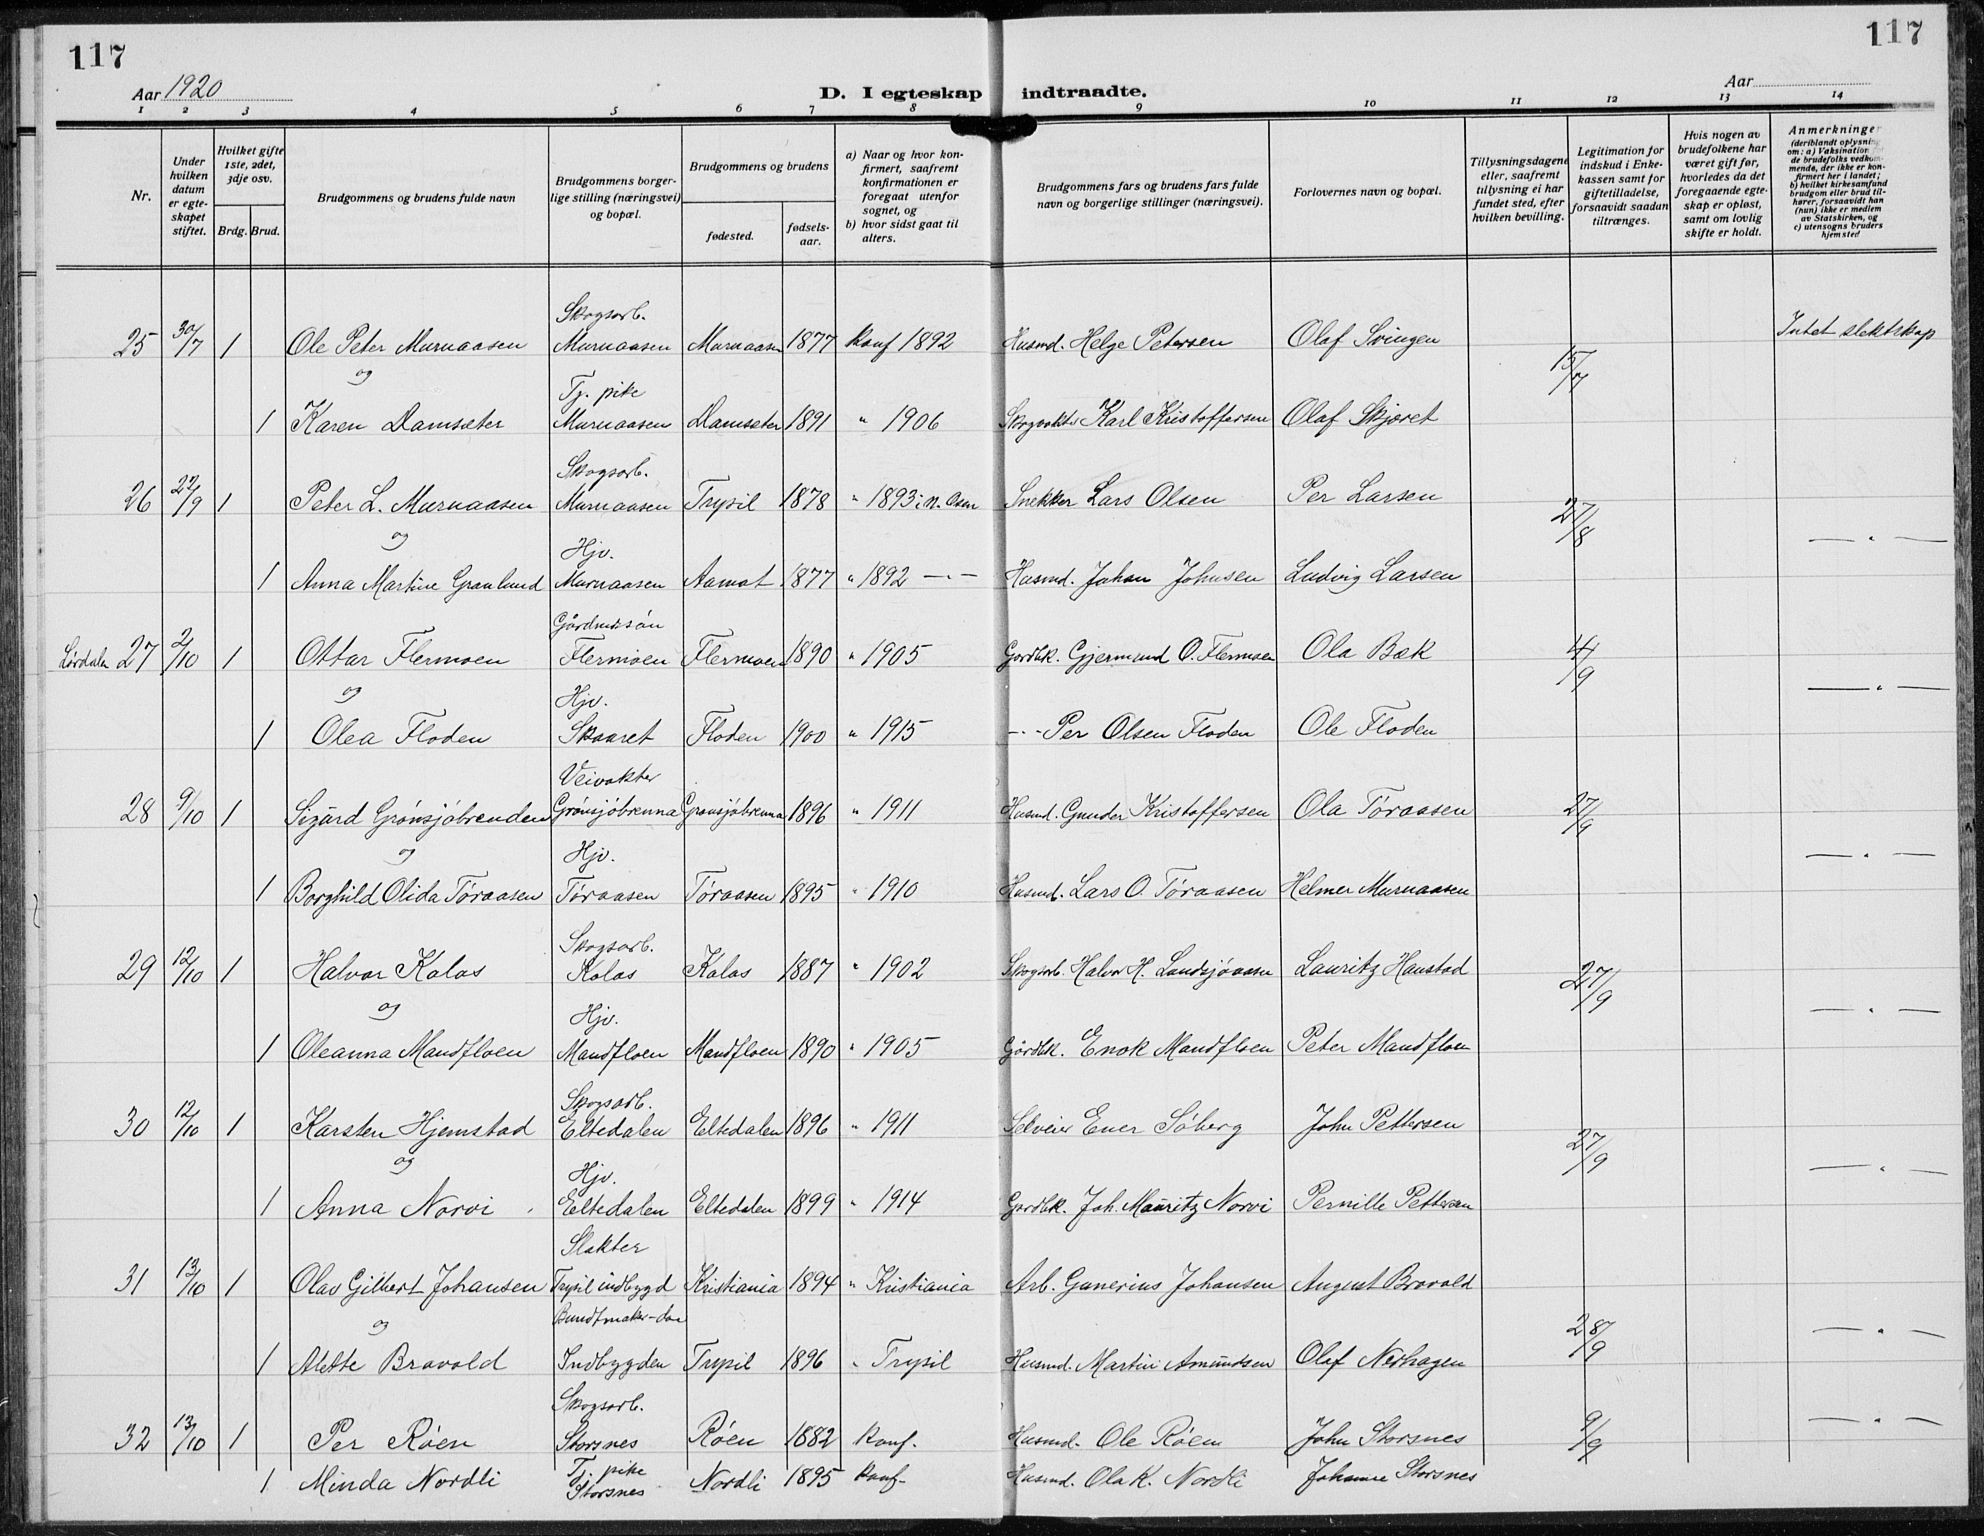 117
117
Aar 1920
D. I egteskap indtraadte.
Aar
1 2 3 4 5 6 7 8 9 10 11 12 13 14
Nr.
Under hvilken datum er egteskapet stiftet.
Hvilket gifte 1ste, 2det, 3dje osv.
Brdg. Brud.
Brudgommens og brudens fulde navn
Brudgommens borgerlige stilling (næringsvei) og bopæl.
Brudgommens og brudens
fødested.
fødselsaar.
a) Naar og hvor konfirmert, saafremt konfirmationen er foregaat utenfor sognet, og
b) hvor sidst gaat til alters.
Brudgommens fars og brudens fars fulde navn og borgerlige stillinger (næringsvei).
Forlovernes navn og bopæl.
Tillysningsdagene eller, saafremt tillysning ei har fundet sted, efter hvilken bevilling.
Legitimation for indskud i Enkekassen samt for giftetilladelse, forsaavidt saadan tiltrænges.
Hvis nogen av brudefolkene har været gift før, hvorledes da det foregaaende egteskap er opløst, samt om lovlig skifte er holdt.
Anmerkninger (deriblandt oplysning om: a) Vaksination for de brudefolks vedkommende, der ikke er konfirmert her i landet; b) hvilket kirkesamfund brudgom eller brud tilhører, forsaavidt han (hun) ikke er medlem av Statskirken, og c) utensogns bruders hjemsted
Skogsarb.
25 30/7 1 Ole Peter Murnaasen Murnaasen Murnaasen 1877 Konf 1892 Husmd. Helge Petersen Olaf Svingen 15/7 Intet slektskap
og Tj. pike
1 Karen Damsæter Murnaasen Damsæter 1891 " 1906 Skogvokter Karl Kristoffersen Olaf Skjæret
Skogsarb.
26 27/9 1 Peter L. Murnaasen Murnaasen Trysil 1878 " 1893 i N. Osen Snekker Lars Olsen Per Larsen 27/8 — " —
og Hjv.
1 Anna Martine Granlund Murnaasen Aamot 1877 " 1892 — " — Husmd. Johan Johnsen Ludvig Larsen
Gårdmdssøn
Lørdalen 27 2/10 1 Ottar Flermoen Flermoen Flermoen 1890 " 1905 Gardbk. Gjermund O. Flermoen Ola Bæk 4/9 — " —
og Hjv.
1 Olea Floden Skaaret Floden 1900 " 1915 - " - Per Olsen Floden Ole Floden
Veivokter
28 9/10 1 Sigurd Grønsjøbrenden Grønsjøbrenna Grønsjøbrenna 1896 " 1911 Husmd. Gunder Kristoffersen Ola Tøraasen 27/9 — " —
og Hjv.
1 Borghild Olida Tøraasen Tøraasen Tøraasen 1895 " 1910 Husmd. Lars O. Tøraasen Helmer Murnaasen
Skogsarb.
29 12/10 1 Halvor Kolos Kolos Kolos 1887 " 1902 Skogsarb. Halvor H. Landsjøaasen Lauritz Hanstad 27/9 — " —
og Hjv.
1 Oleanna Mandfloen Mandfloen Mandfloen 1890 " 1905 Gårdbk. Enok Mandfloen Peter Mandfloen
Skogsarb.
30 12/10 1 Karsten Hjemstad Eltedalen Eltedalen 1896 " 1911 Selveier Ener Søberg John Pettersen 27/9 — " —
og Hjv.
1 Anna Norvi Eltedalen Eltedalen 1899 " 1914 Gardbk. Joh. Mauritz Norvi Pernille Pettersen
Slakter
31 13/10 1 Olav Gilbert Johansen Trysil indbygd Kristiania 1894 " Kristiania Arb. Gunerius Johansen August Bravold 28/9 — " —
og Buntmaker-
1 Alette Bravold Indbygden Trysil 1896 " Trysil Husmd. Martin Amundsen Olaf Nerhagen
Skogsarb.
32 13/10 1 Per Røen Storsnes Røen 1882 Konf. Husmd. Ole Røen John Storsnes 9/9 — " —
Tj. pike
1 Minda Nordli Storsnes Nordli 1895 Konf. Husmd. Ola K. Nordli Johanne Storsnes